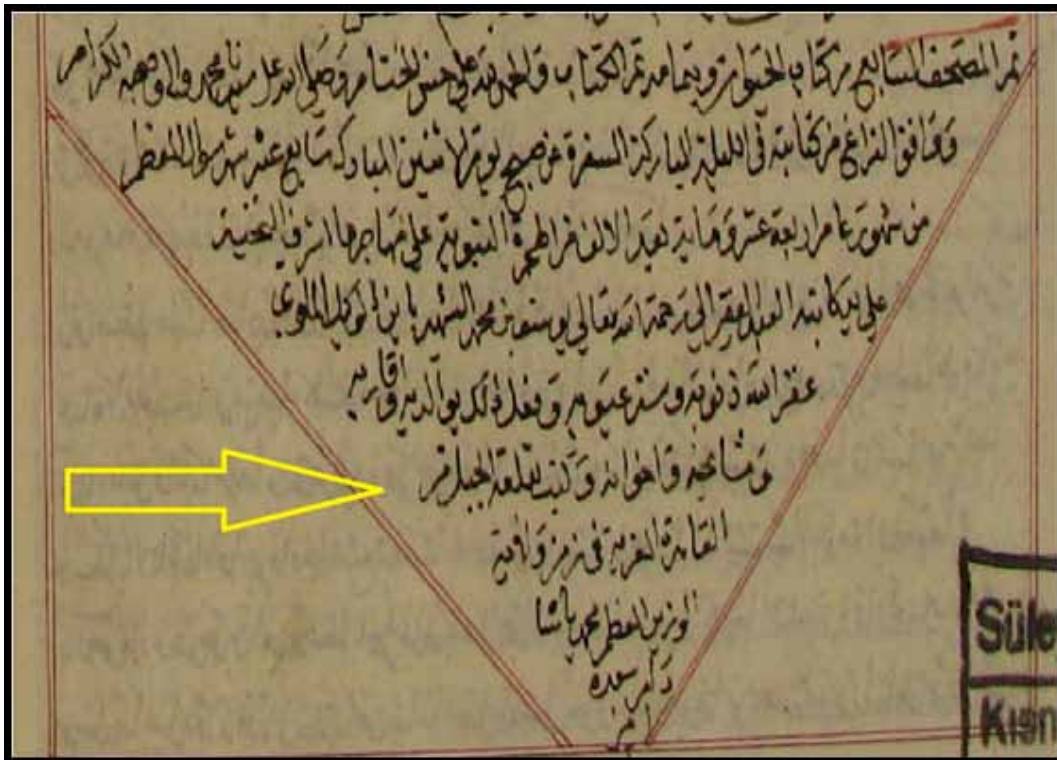 تم المصحف السابع من كتاب الحيوان وبتمامه تم الكتاب والحمد لله على حسن الختام وصلى الله على سيدنا محمد واله وصحبه الكرام
ووافق الفراغ من كتابته في الليلة المباركة السفرة عن صبيح يوم الاثنين المبارك سابع عشر شهر شوال المعظم
من شهور عام اربعة عشر ومائة بعد الالف من الهجرة النبوية على مهاجرها اشرف التحية
على يد كاتبه العبد الفقير الى رحمة الله تعالى يوسف بن محمد الشهير بابن الوكيل الملوي
غفر الله ذنوبه وستر عيوبه وفعل ذلك بوالديه واقاربه
ومشايخه واخوانه وكتب بقلعة الجبل من
القاهرة المعزية في زمن ولاية
الوزير المعظم محمد باشا
دام سعده
امين
Süle
Kısm